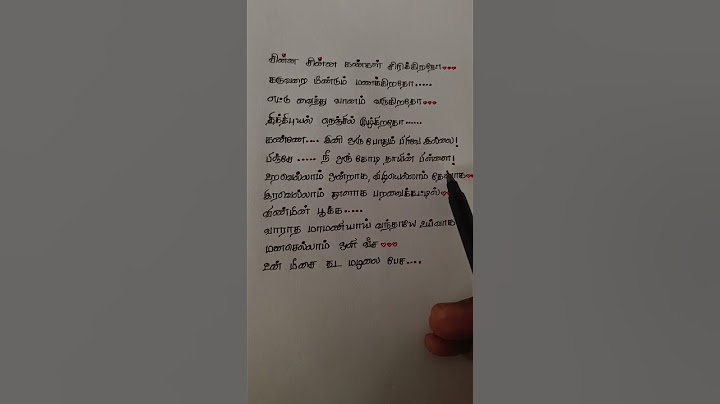 சின்ன சின்ன கண்கள் சிரிக்கிறதோ❤❤❤
கருவறை மீண்டும் மணக்கிறதோ.....
எட்டு வைத்து வானம் வருகிறதோ❤❤❤
தித்திபுயல் நெஞ்சில் இழ்கிறதோ.....
கண்ணே.... இனி ஒரு போதும் பிரிவே இல்லை!
பிஞ்சே ..... நீ ஒரு கோடி தாயின் பிள்ளை!
உறவெல்லாம் ஒன்றாக, விழியெல்லாம் தேனாக
இரவெல்லாம் நாளாக பறவைக்கூட்டில்
விண்மீன் பூக்க.....
வாராத மாமணியாய் வந்தாயே உயிராக
மனசெல்லாம் ஒளி வீச ❤❤❤
உன் மீசை கூட மழலை பேச....